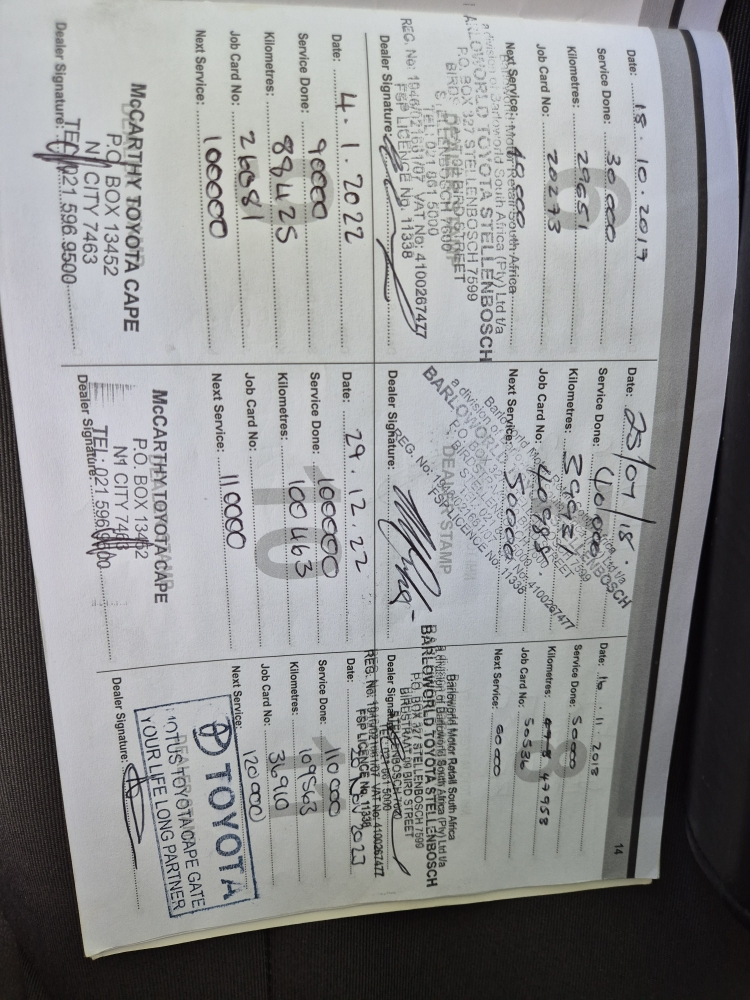 14
Date: 18.10.2017
Service Done: 30 000
Kilometres: 29651
Job Card No: 20293
Next Service: 40 000
Barloworld Motor Retail South Africa
a division of Barloworld South Africa (Pty) Ltd t/a
BARLOWORLD TOYOTA STELLENBOSCH
P.O. BOX 327 STELLENBOSCH 7599
TEL: 021 861 5000
REG. No: VAT No: 4100267477
FSP LICENCE No. 11338
Dealer Signature:
Date: /18
Service Done: 40 000
Kilometres:
Job Card No:
Next Service: 50000
DEALER STAMP
BARLOWORLD
STELLENBOSCH
4100267477
FSP LICENCE No. 11338
Dealer Signature:
Date: 16.11.2018
Service Done: 50000
Kilometres: 47958
Job Card No: 50536
Next Service: 60 000
Barloworld Motor Retail South Africa
a division of Barloworld South Africa (Pty) Ltd t/a
BARLOWORLD TOYOTA STELLENBOSCH
P.O. BOX 327 STELLENBOSCH 7599
BIRD STREET
VAT No: 4100267477
FSP LICENCE No. 11338
Dealer Signature:
Date: 4.1.2022
Service Done: 90000
Kilometres: 88425
Job Card No: 26081
Next Service: 100000
McCARTHY TOYOTA CAPE
P.O. BOX 13452
N1 CITY 7463
TEL: 021 596 9500
Dealer Signature:
10
Date: 29.12.22
Service Done: 100000
Kilometres: 100463
Job Card No:
Next Service: 110000
McCARTHY TOYOTA CAPE
P.O. BOX 13452
N1 CITY 7463
TEL: 021 596 9500
Dealer Signature:
11
Date: 2023
Service Done: 110 000
Kilometres: 109563
Job Card No: 36910
Next Service: 120 000
TOYOTA
MOTUS TOYOTA CAPE GATE
YOUR LIFE LONG PARTNER
Dealer Signature: